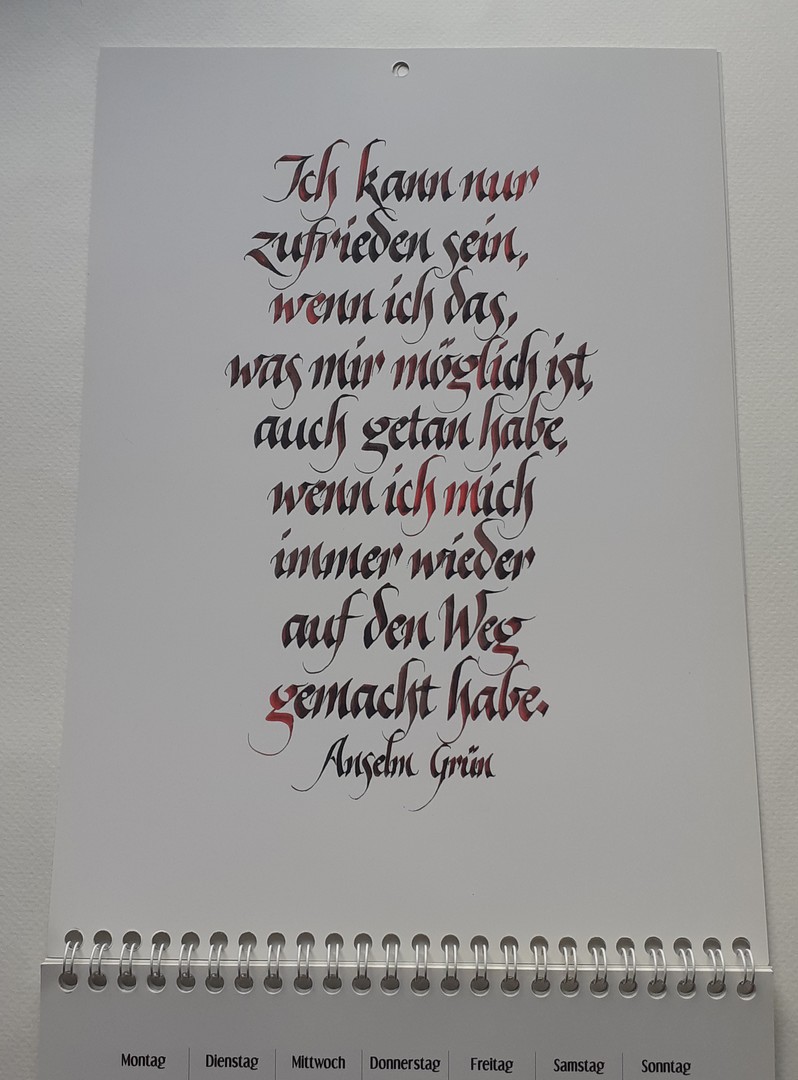 Ich kann nur
zufrieden sein,
wenn ich das,
was mir möglich ist,
auch getan habe,
wenn ich mich
immer wieder
auf den Weg
gemacht habe.
Anselm Grün
Montag Dienstag Mittwoch Donnerstag Freitag Samstag Sonntag